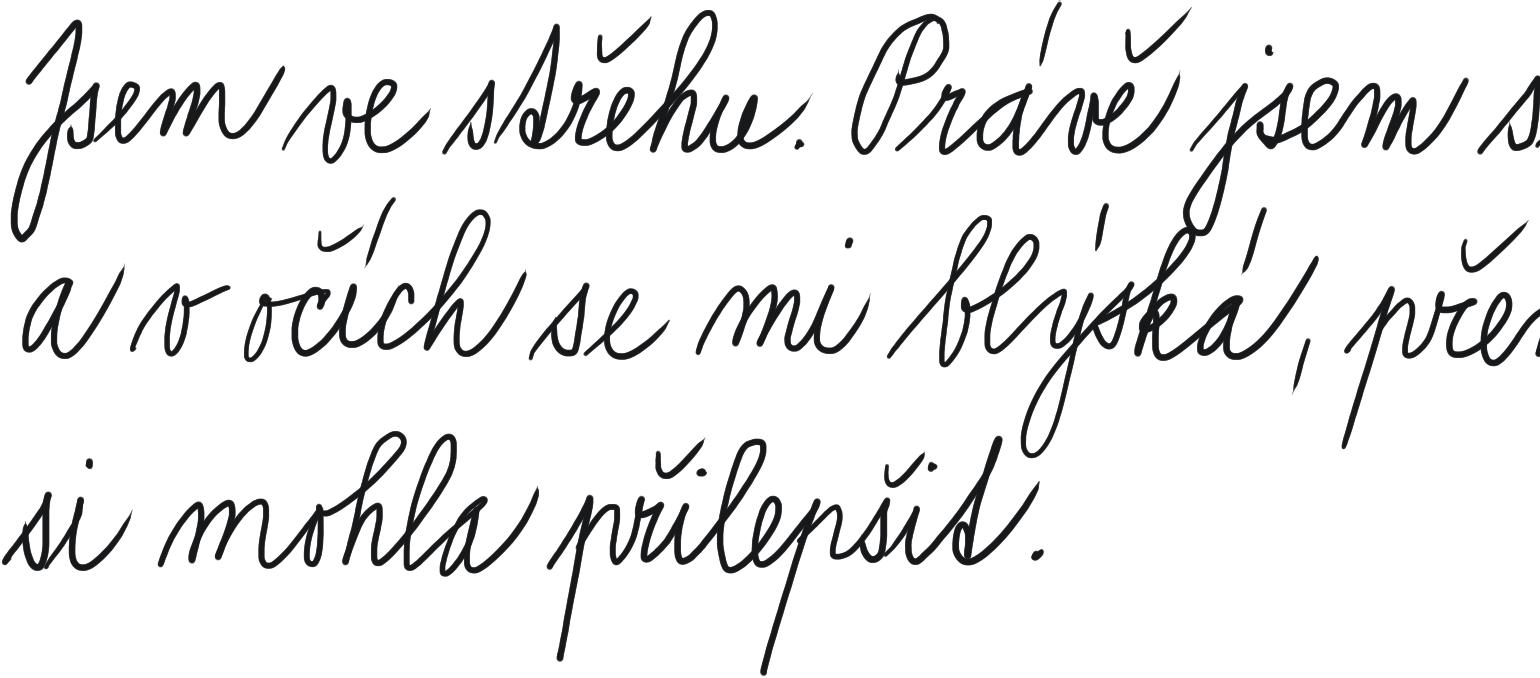 Jsem ve střehu. Právě jsem s
a v očích se mi blýská, pře
si mohla přilepšit.